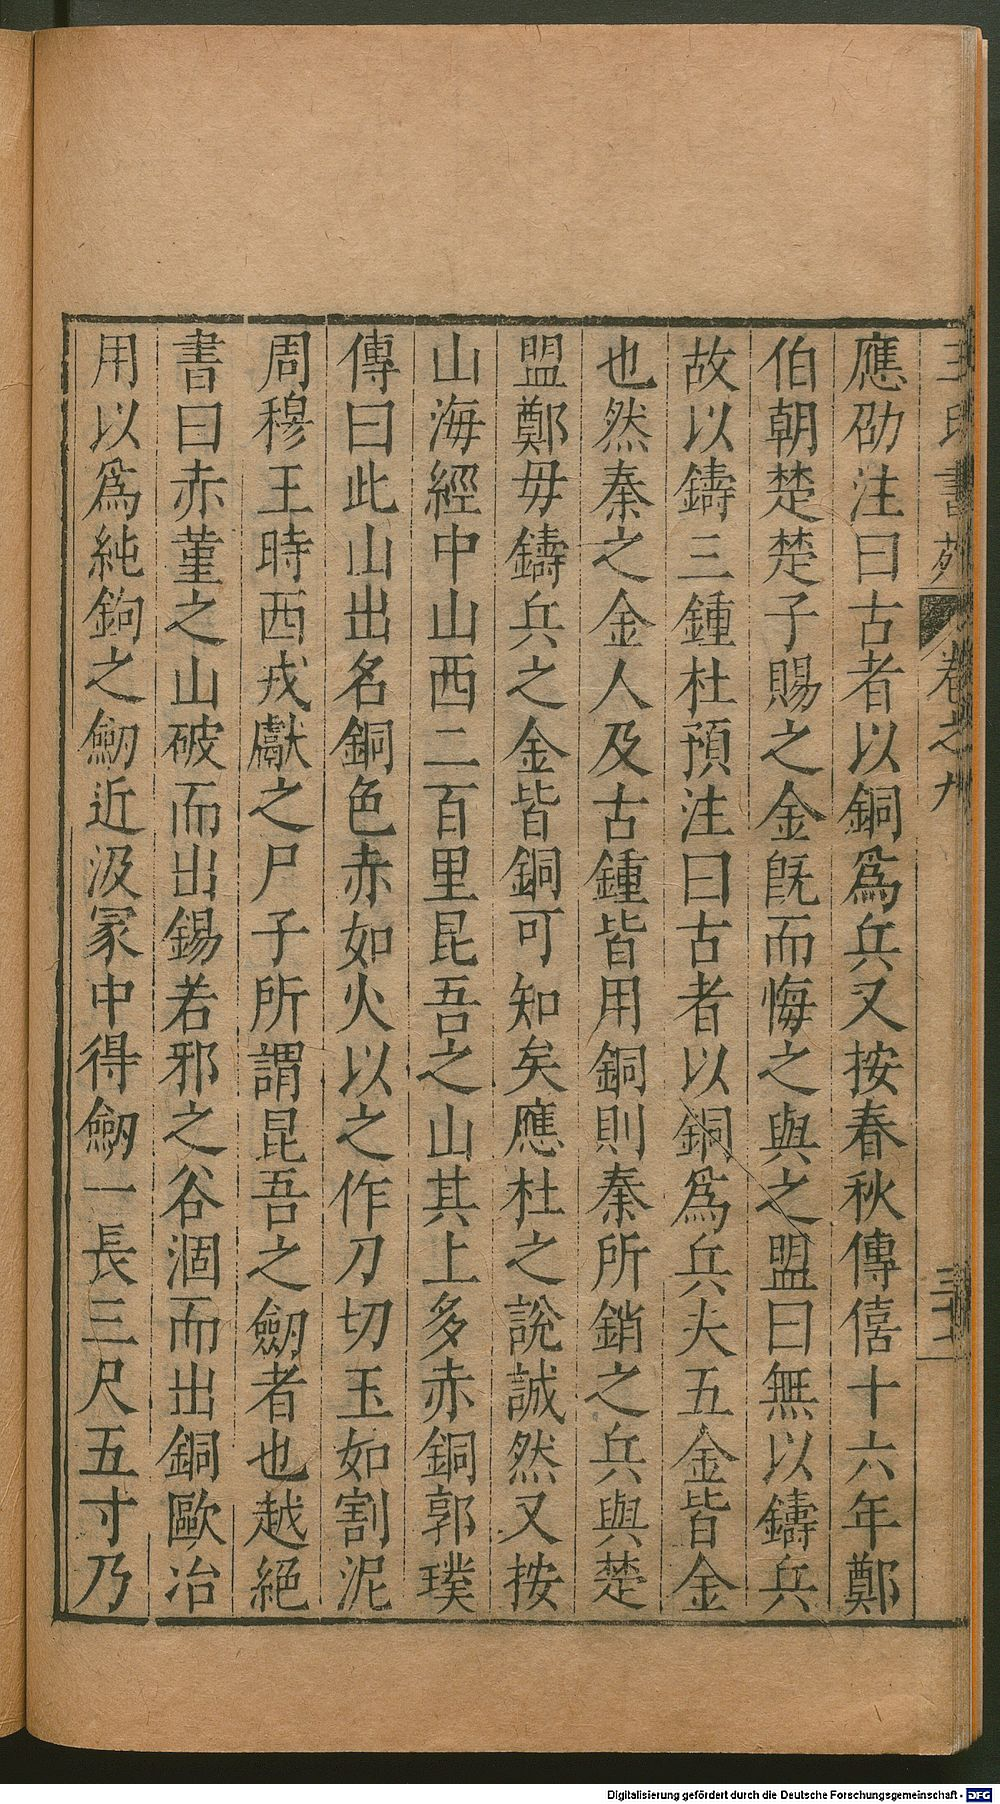 王氏書苑 卷之九
應劭注曰古者以銅爲兵又按春秋傳僖十六年鄭
伯朝楚楚子賜之金旣而悔之與之盟曰無以鑄兵
故以鑄三鍾杜預注曰古者以銅爲兵夫五金皆金
也然秦之金人及古鍾皆用銅則秦所銷之兵與楚
盟鄭毋鑄兵之金皆銅可知矣應杜之說誠然又按
山海經中山西二百里昆吾之山其上多赤銅郭璞
傳曰此山出名銅色赤如火以之作刀切玉如割泥
周穆王時西戎獻之尸子所謂昆吾之劒者也越絕
書曰赤堇之山破而出錫若邪之谷涸而出銅歐冶
用以爲純鉤之劒近汲冢中得劒一長三尺五寸乃
Digitalisierung gefördert durch die Deutsche Forschungsgemeinschaft - DFG